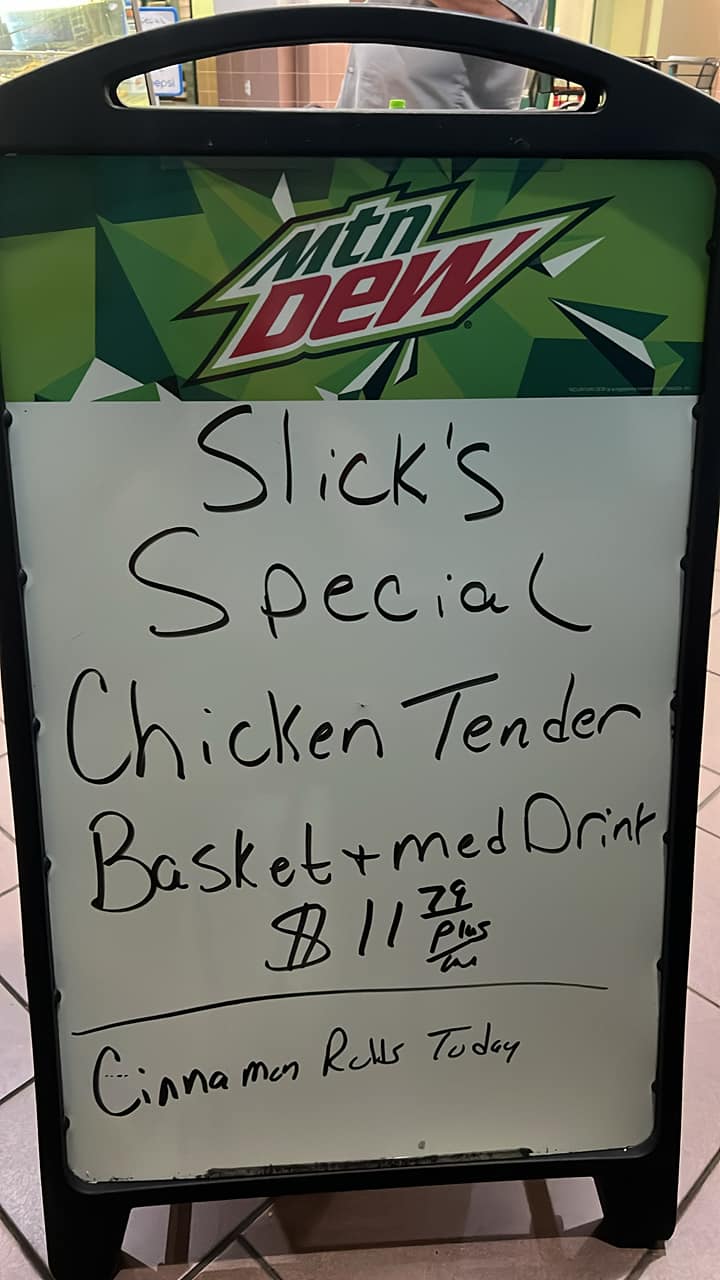 epsi
Mtn
DEW
Slick's
Special
Chicken Tender
Basket + med Drink
$11 79
plus
Cinnamon Rolls Today